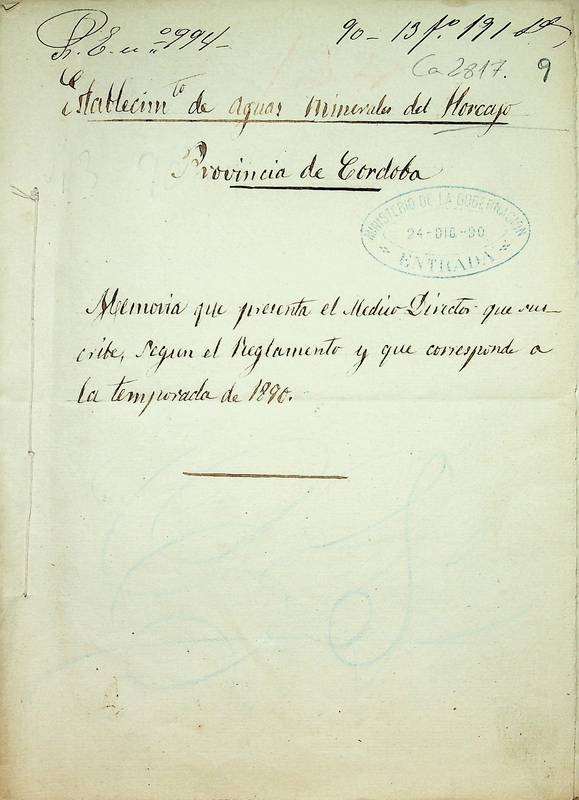 R. E. n.º 994-
90- 13 fº 191
Ca 2817. 9
Establecim.to de aguas minerales del Horcajo
Provincia de Cordoba
MINISTERIO DE LA GOBERNACION
24-DIC-90
ENTRADA
Memoria que presenta el Medico Director que sus-
cribe, segun el Reglamento y que corresponde a
la temporada de 1890.